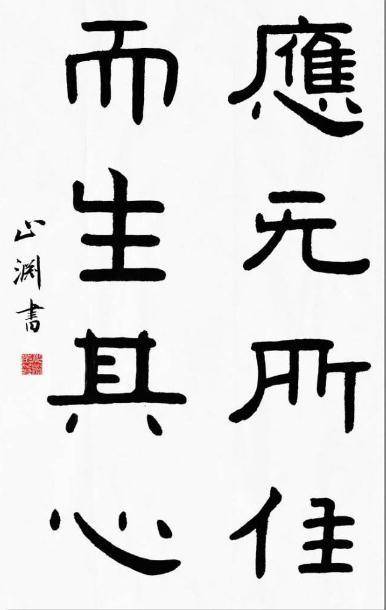 應无所住
而生其心
山渊書